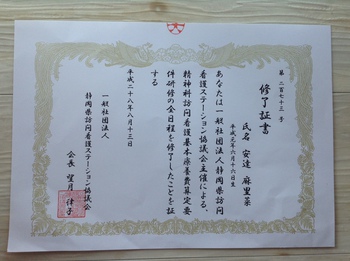 第 二百七十三 号
修了証書
氏名 安達 麻里菜
平成元年六月十六日生
あなたは一般社団法人静岡県訪問
看護ステーション協議会主催による、
精神科訪問看護基本療養費算定要
件研修の全日程を修了したことを証
する
平成二十八年八月十三日
一般社団法人
静岡県訪問看護ステーション協議会
会長 望月 律子